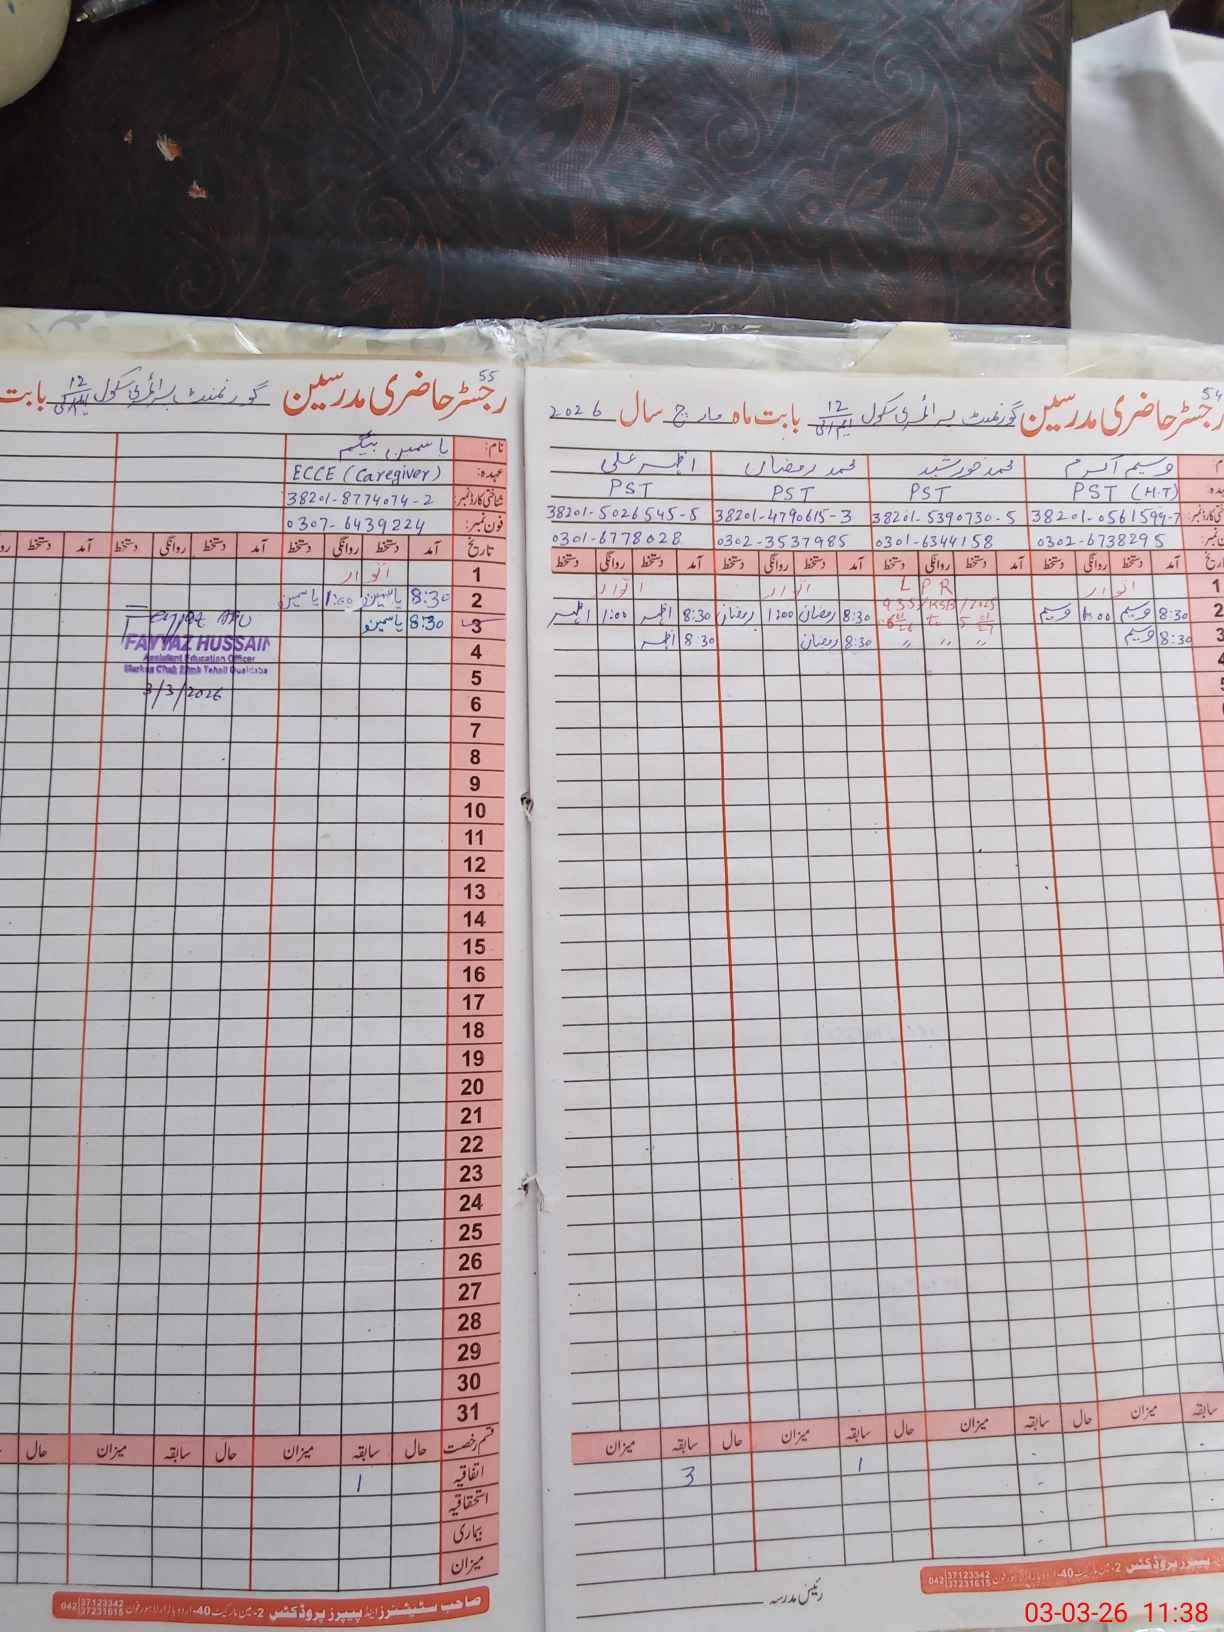 54
رجسٹر حاضری مدرسین گورنمنٹ پرائمری سکول 12 ایم بی بابت ماہ مارچ سال 2026
وسیم اکرم محمد خورشید محمد رمضان اظہر علی
PST (H.T) PST PST PST
38201-0561599-7 38201-5390730-5 38201-4790615-3 38201-5026545-5
0302-6738295 0301-6344158 0302-3537985 0301-6778028
آمد دستخط روانگی دستخط آمد دستخط روانگی دستخط آمد دستخط روانگی دستخط آمد دستخط روانگی دستخط
1 اتوار L P R اتوار اتوار
2 8:30 وسیم 1:00 وسیم 8:30 رمضان 1:00 رمضان 8:30 اظہر 1:00 اظہر
3 8:30 وسیم 〃 〃 〃 8:30 رمضان 8:30 اظہر
سابقہ میزان حال سابقہ میزان حال سابقہ میزان حال سابقہ میزان
1 3
رئیس مدرسہ
پیپرز پروڈکٹس 2-مین مارکیٹ 40-اردو بازار لاہور فون 042 37123342 37231615
55
رجسٹر حاضری مدرسین گورنمنٹ پرائمری سکول 12 ایم بی بابت
نام: یاسمین بیگم
عہدہ: ECCE (Caregiver)
شناختی کارڈ نمبر: 38201-8774074-2
فون نمبر: 0307-6439224
تاریخ آمد دستخط روانگی دستخط آمد دستخط روانگی دستخط آمد دستخط
1 اتوار
2 8:30 یاسمین 1:00 یاسمین
3 8:30 یاسمین
FAYYAZ HUSSAIN
Assistant Education Officer
3/3/2026
4
5
6
7
8
9
10
11
12
13
14
15
16
17
18
19
20
21
22
23
24
25
26
27
28
29
30
31
قسم رخصت حال سابقہ میزان حال سابقہ میزان حال
اتفاقیہ 1
استحقاقیہ
بیماری
میزان
صاحب سٹیشنرز اینڈ پیپرز پروڈکٹس 2-مین مارکیٹ 40-اردو بازار لاہور فون 042 37123342 37231615
03-03-26 11:38